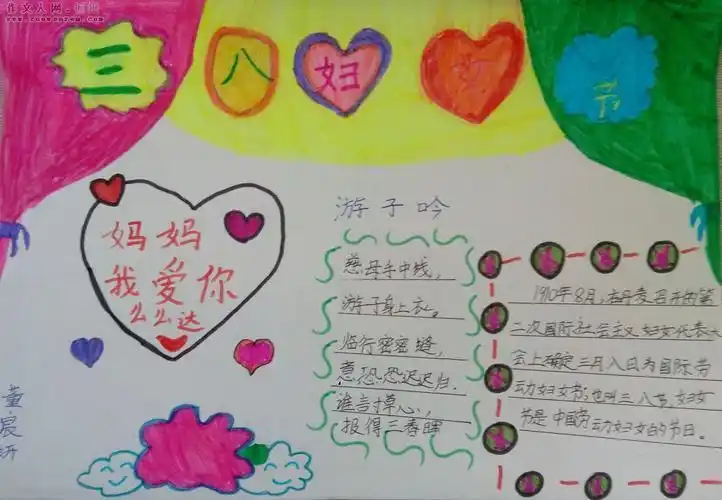 作文人网
三 八 妇 女 节
妈妈
我爱你
么么达
游子吟
慈母手中线,
游子身上衣。
临行密密缝,
意恐迟迟归.
谁言寸草心,
报得三春晖
1910年8月,在丹麦召开的第
二次国际社会主义妇女代表大
会上确定三月八日为国际劳
动妇女节;也叫三八节,妇女
节是中國劳动妇女的节日。
董宸